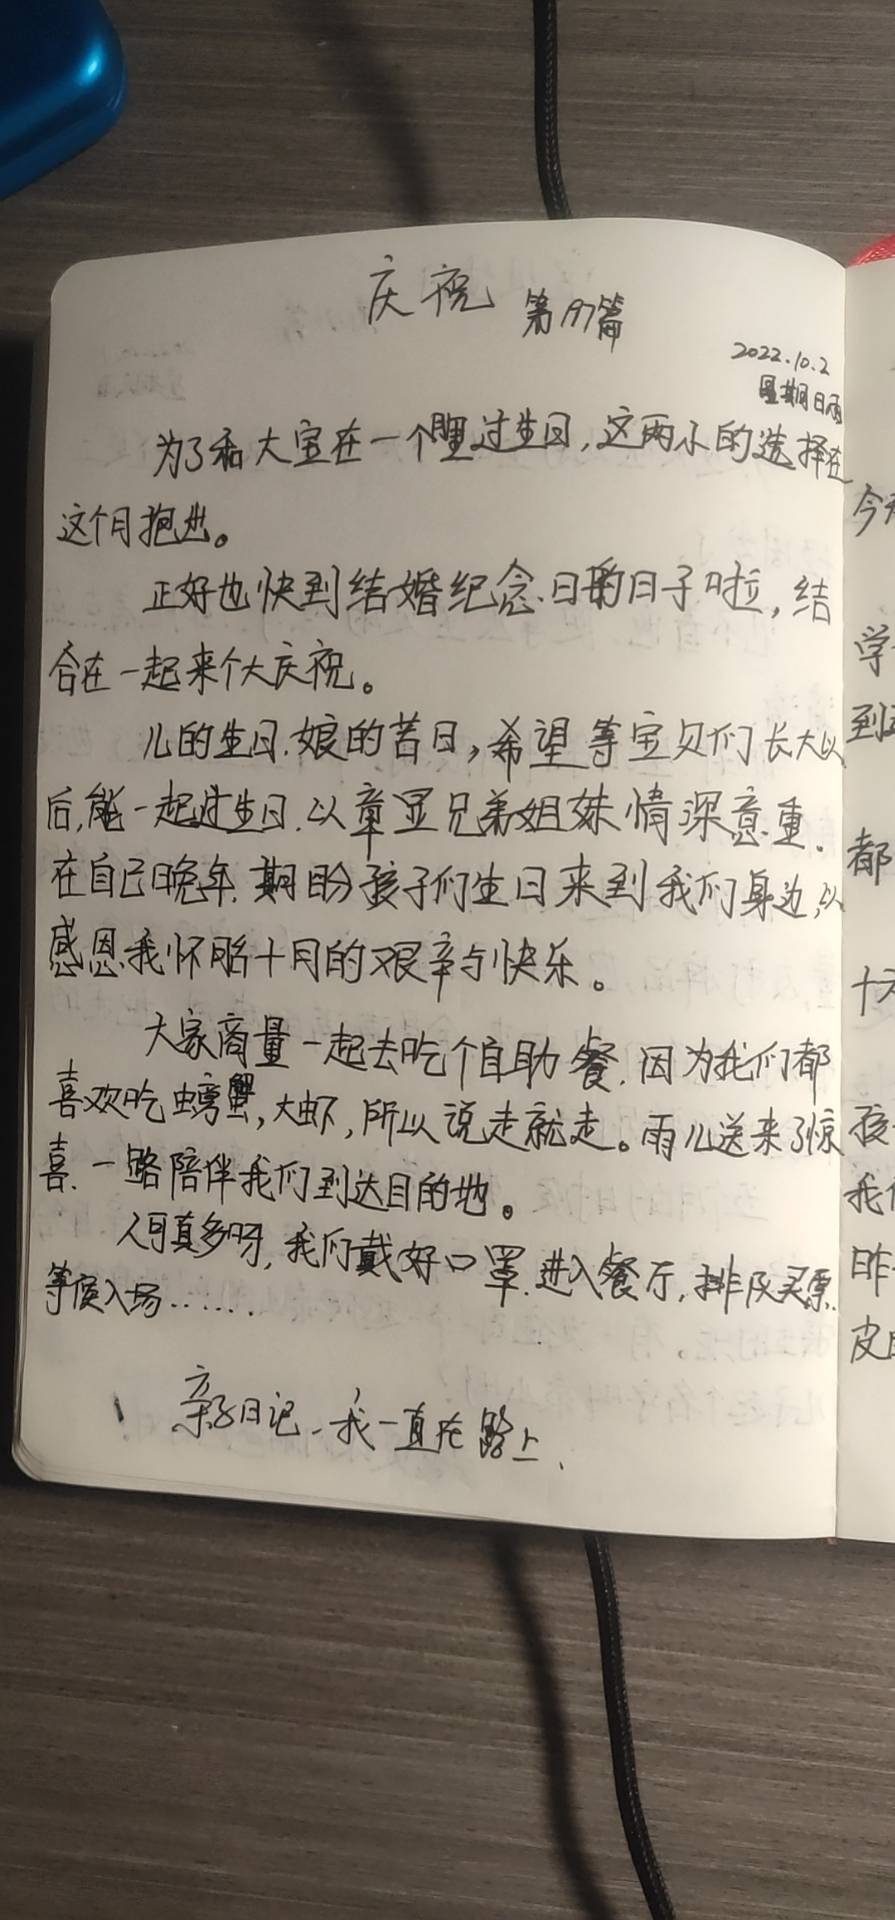 庆祝 第197篇
2022.10.2
星期日雨
为了和大宝在一个月里过生日,这两小的选择在
这个月抱出。
正好也快到结婚纪念日的日子啦,结
合在一起来个大庆祝。
儿的生日.娘的苦日,希望等宝贝们长大以
后,能一起过生日.以章显兄弟姐妹情深意重.
在自己晚年.期盼孩子们生日来到我们身边,以
感恩我怀胎十月的艰辛与快乐。
大家商量一起去吃个自助餐.因为我们都
喜欢吃螃蟹,大虾,所以说走就走。雨儿送来了惊
喜.一路陪伴我们到达目的地。
人可真多呀,我们戴好口罩.进入餐厅,排队买票.
等候入场……
亲子日记.我一直在路上.
今天
学
到
都
十
孩
我们
昨
皮